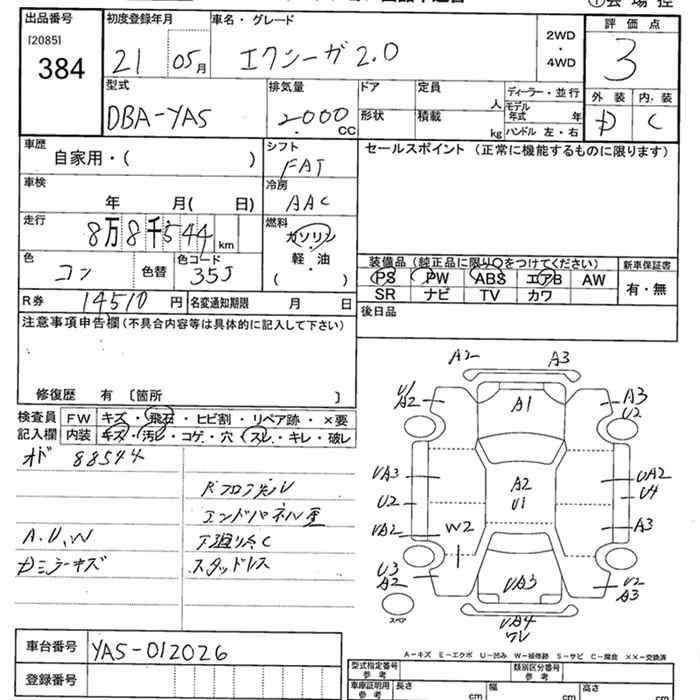 出品番号 初度登録年月 車名・グレード 評価点
[2085]
384
21 05月 エクシーガ2.0
2WD
・
4WD
3
型式 排気量 ドア 定員 人 ディーラー・並行 外装 内装
DBA-YA5 2000 CC 形状 積載 kg モデル年式 年 D C
ハンドル 左・右
車歴 自家用・( ) シフト FAT セールスポイント (正常に機能するものに限ります)
車検 年 月( 日) 冷房 AAC
走行 8万8千544 km 燃料 ガソリン
軽・油
( )
色 コン 色替 色コード 35J
装備品 (純正品に限り○をつけてください) 新車保証書
PS PW ABS エアB AW 有・無
SR ナビ TV カワ
R券 14510 円 名変通知期限 月 日
後日品
注意事項申告欄 (不具合内容等は具体的に記入して下さい)
修復歴 有 〔箇所 〕
検査員 FW キズ・飛石・ヒビ割・リペア跡・×要
記入欄 内装 キズ・汚レ・コゲ・穴・スレ・キレ・破レ
オド 88544
エンドパネル歪
A.U.W 下廻リサC
Dミラーキズ スタッドレス
A2 A3
U1
A2 A1 A3
U2
UA3 A2
U1 UA2
U4
U2
UA2 W2 A3
U3
A2 UA3 U2
A3
UA4
ワレ
スペア
A－キズ E－エクボ U－凹み W－補修跡 S－サビ C－腐食 ××－交換済
車台番号 YA5-012026
登録番号
型式指定番号 参考 類別区分番号 参考
車庫証明用 参考 長さ cm 幅 cm 高さ cm